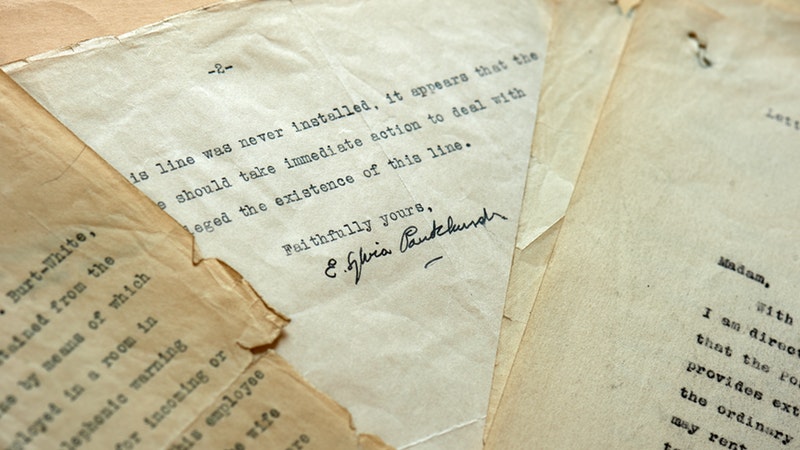 -2-
is line was never installed, it appears that the
e should take immediate action to deal with
leged the existence of this line.
Faithfully yours,
E. Sylvia Pankhurst
. Burt-White,
tained from the
ne by means of which
ployed in a room in
lephonic warning
for incoming or
his employee
he wife
ore
Lett
Madam,
With
I am direct
that the Po
provides ext
the ordinary
may rent